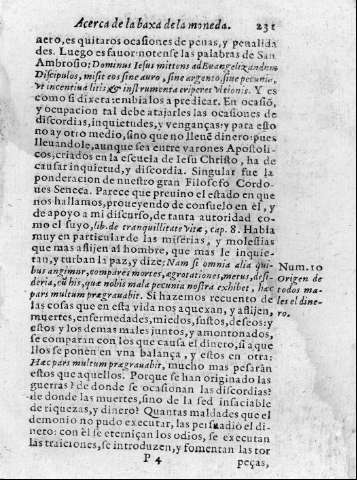 Acerca de la baxa de la moneda. 231
nero, es quitaros ocasiones de penas, y penalida
des. Luego es fauor: notense las palabras de San
Ambrosio; Dominus Iesus mittens ad Euangelizandum
Discipulos, misit eos sine auro, sine argento, sine pecunia,
vt incentiua litis, & instrumenta eriperet vltionis. Y es
como si dixera: embialos a predicar. En ocasiō,
y ocupacion tal debe atajarles las ocasiones de
discordias, inquietudes, y venganças: y para esto
no ay otro medio, sino que no lleuē dinero: pues
lleuandole, aunque sea entre varones Apostoli-
cos, criados en la escuela de Iesu Christo, ha de
causar inquietud, y discordia. Singular fue la
ponderacion de nuestro gran Filosofo Cordo-
ues Seneca. Parece que preuino el estado en que
nos hallamos, proueyendo de consuelo en èl, y
de apoyo a mi discurso, de tanta autoridad co-
mo el suyo, lib. de tranquillitate vitæ, cap. 8. Habla
muy en particular de las miserias, y molestias
que mas aflijen al hombre, que mas le inquie-
tan, y turban la paz, y dize: Nam si omnia alia qui-
bus angimur, compares mortes, ægrotationes, metus, desi-
deria, cū his, quæ nobis mala pecunia nostra exhibet, hæc
pars multum prægrauabit. Si hazemos recuento de
las cosas que en esta vida nos aquexan, y aflijen,
muertes, enfermedades, miedos, sustos, deseos: y
estos y los demas males juntos, y amontonados,
se comparan con los que causa el dinero, si aque
llos se ponen en vna balança, y estos en otra:
Hæc pars multum prægrauabit, mucho mas pesaràn
estos que aquellos. Porque se han originado las
guerras? de donde se ocasionan las discordias?
de donde las muertes, sino de la sed insaciable
de riquezas, y dinero? Quantas maldades que el
demonio no pudo executar, las persuadiò el di-
nero: con èl se eterniçan los odios, se executan
las traiciones, se introduzen, y fomentan las tor
P 4 peças,
Num. 10
Origen de
todos ma-
les el dine-
ro.